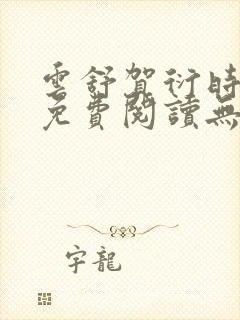 雲舒賀衍時
免費閱讀無
字龍